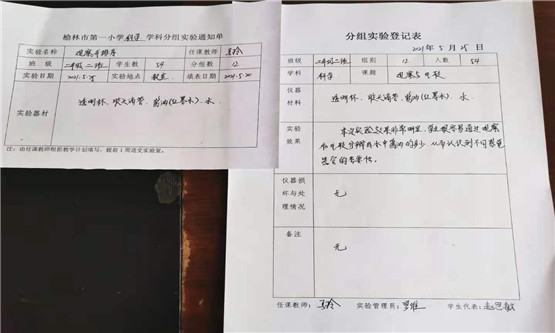 榆林市第一小学科学学科分组实验通知单
实验名称 观察与推理 任课教师
班级 二年级二班 学生数 54 分组数 12
实验日期 2021.5.25 实验地点 教室 填表日期 2021.5.20
实验器材 透明杯、吸管、酱油(红墨水)、水
注:由任课教师根据教学计划填写,提前1周送交实验室。
分组实验登记表
2021年5月25日
班级 二年级二班 组别 12 人数 54
学科 科学 课题 观察与
仪器材料 透明杯、吸管、酱油(红墨水)、水
实验效果 本次实验效果非常明显,学生
水中酱油的多少,从而认识到不同
的重要性。
仪器损坏与处理情况 无
备注 无
任课教师: 实验管理员: 学生代表: